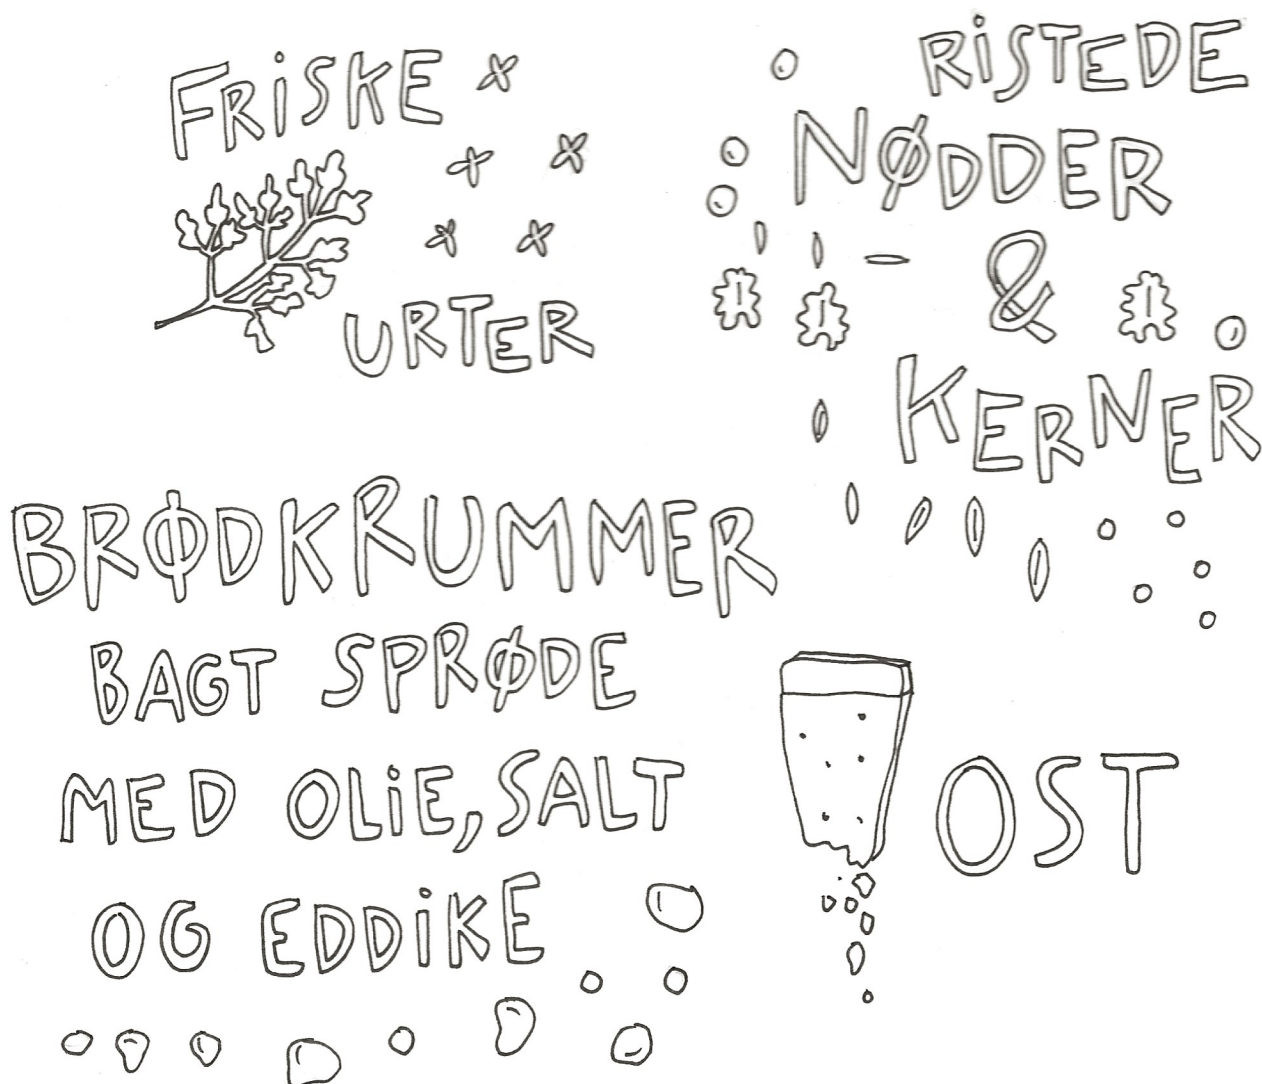 FRiSKE
URTER
RiSTEDE
NØDDER
&
KERNER
BRØDKRUMMER
BAGT SPRØDE
MED OLiE, SALT
OG EDDiKE
OST